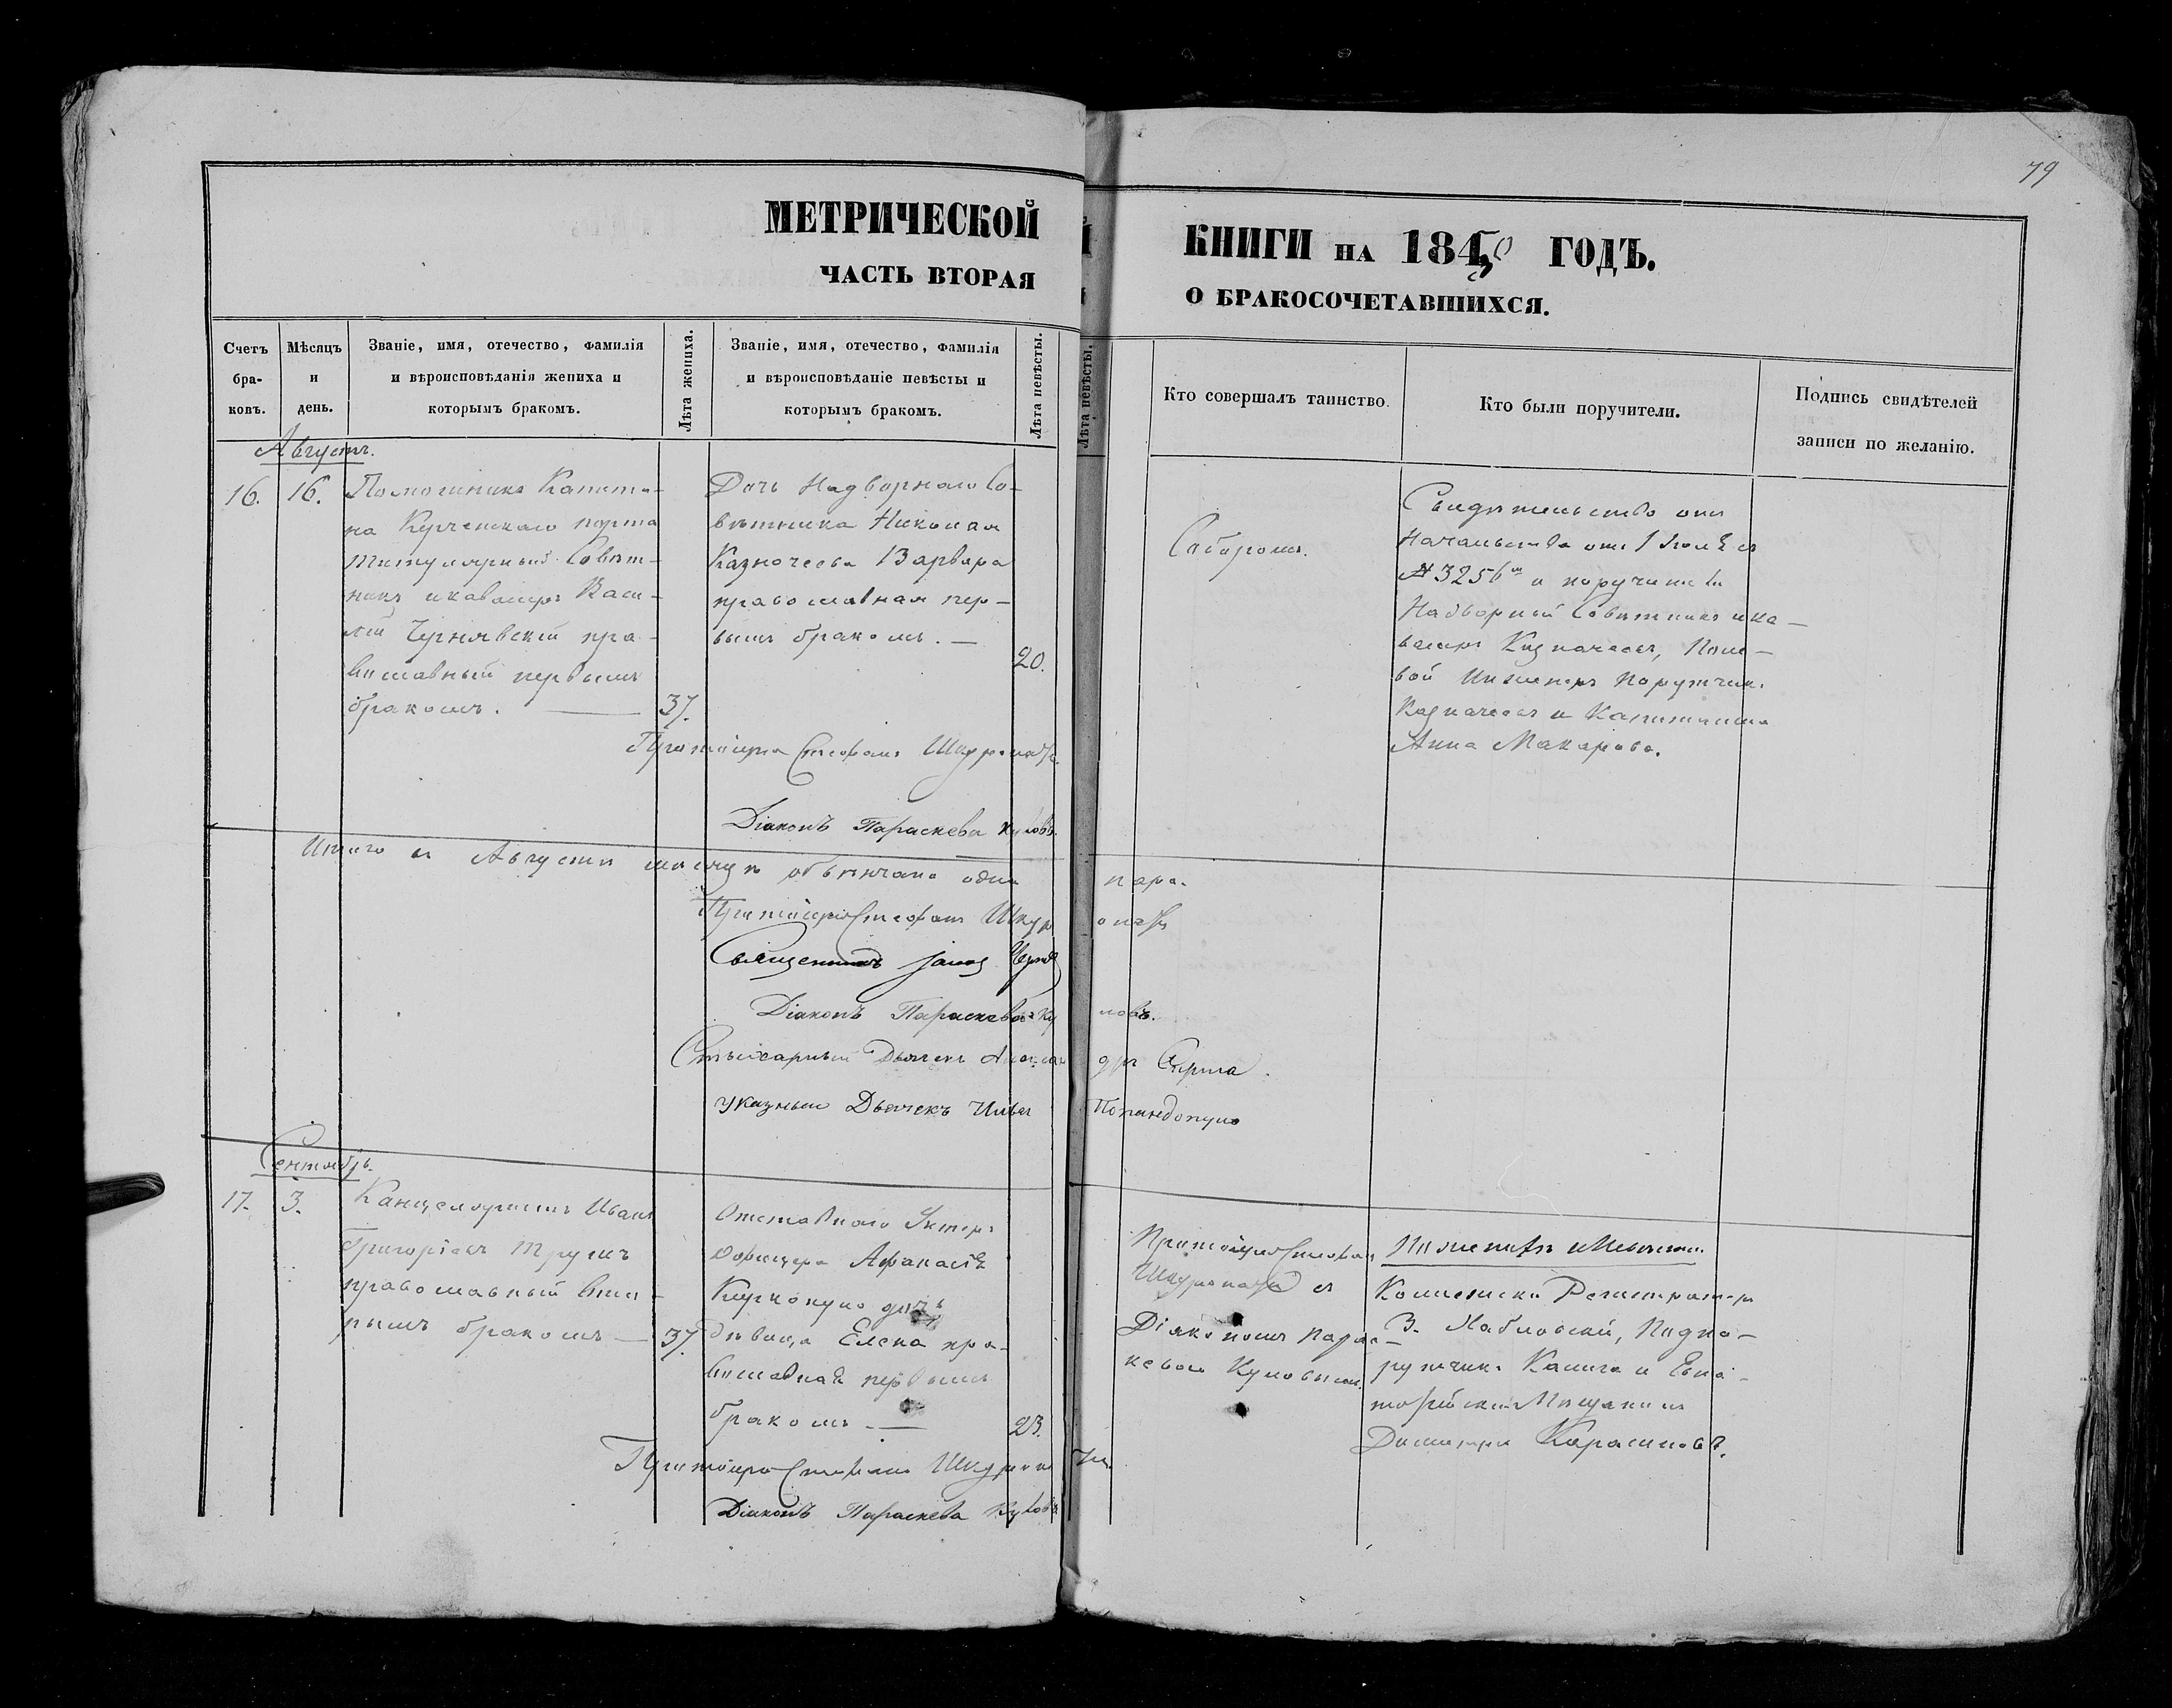 79
МЕТРИЧЕСКОЙ
ЧАСТЬ ВТОРАЯ
КНИГИ НА 1850 ГОДЪ.
О БРАКОСОЧЕТАВШИХСЯ.
Счетъ бра- ковъ.
Мѣсяцъ и день.
Званіе, имя, отечество, фамилія
и вѣроисповѣданія жениха и
которымъ бракомъ.
Лѣта жениха.
Званіе, имя, отечество, фамилія
и вѣроисповѣданіе невѣсты и
которымъ бракомъ.
Лѣта невѣсты.
Лѣта невѣсты.
Кто совершалъ таинство.
Кто были поручители.
Подпись свидѣтелей
записи по желанію.
Августъ.
16.
16.
Помощникъ Капита-
на Керченскаго порта
Титулярный Совѣт-
никъ и кавалеръ Васи-
лій Чернявскій пра-
вославный первымъ
бракомъ. —
37.
Дочь Надворнаго Со-
вѣтника Николая
Казначеева Варвара
православная пер-
вымъ бракомъ. —
20.
Соборомъ.
Свидѣтельство отъ
Начальства отъ 1 Іюля
№ 3256 и поручители
Надворный Совѣтникъ и ка-
валеръ Казначеевъ, Поле-
вой Инженеръ Поручикъ
Казначеевъ и Капитанша
Анна Макарова.
Протоіерей Стефанъ
Діаконъ Параскева Куловъ.
Итого въ Августѣ мѣсяцѣ обвѣнчана одна пара.
Протоіерей Стефанъ
Священникъ
Діаконъ Параскева Куловъ.
Стихарный Дьячекъ Александръ
указный Дьячекъ Попандопуло
Сентябрь.
17.
3.
Канцеляристъ Иванъ
Григорьевъ
православный вто-
рымъ бракомъ —
37.
Отставнаго Унтеръ
Офицера Афанасія
дочь
дѣвица Елена пра-
вославная первымъ
бракомъ —
23.
Протоіерей Стефанъ
съ
Діакономъ Парас-
кевою Куловымъ.
Коллежскій Регистраторъ
В. Подпо-
ручикъ и Евпа-
торійскій Мѣщанинъ
Дмитрій
Протоіерей Стефанъ
Діаконъ Параскева Куловъ